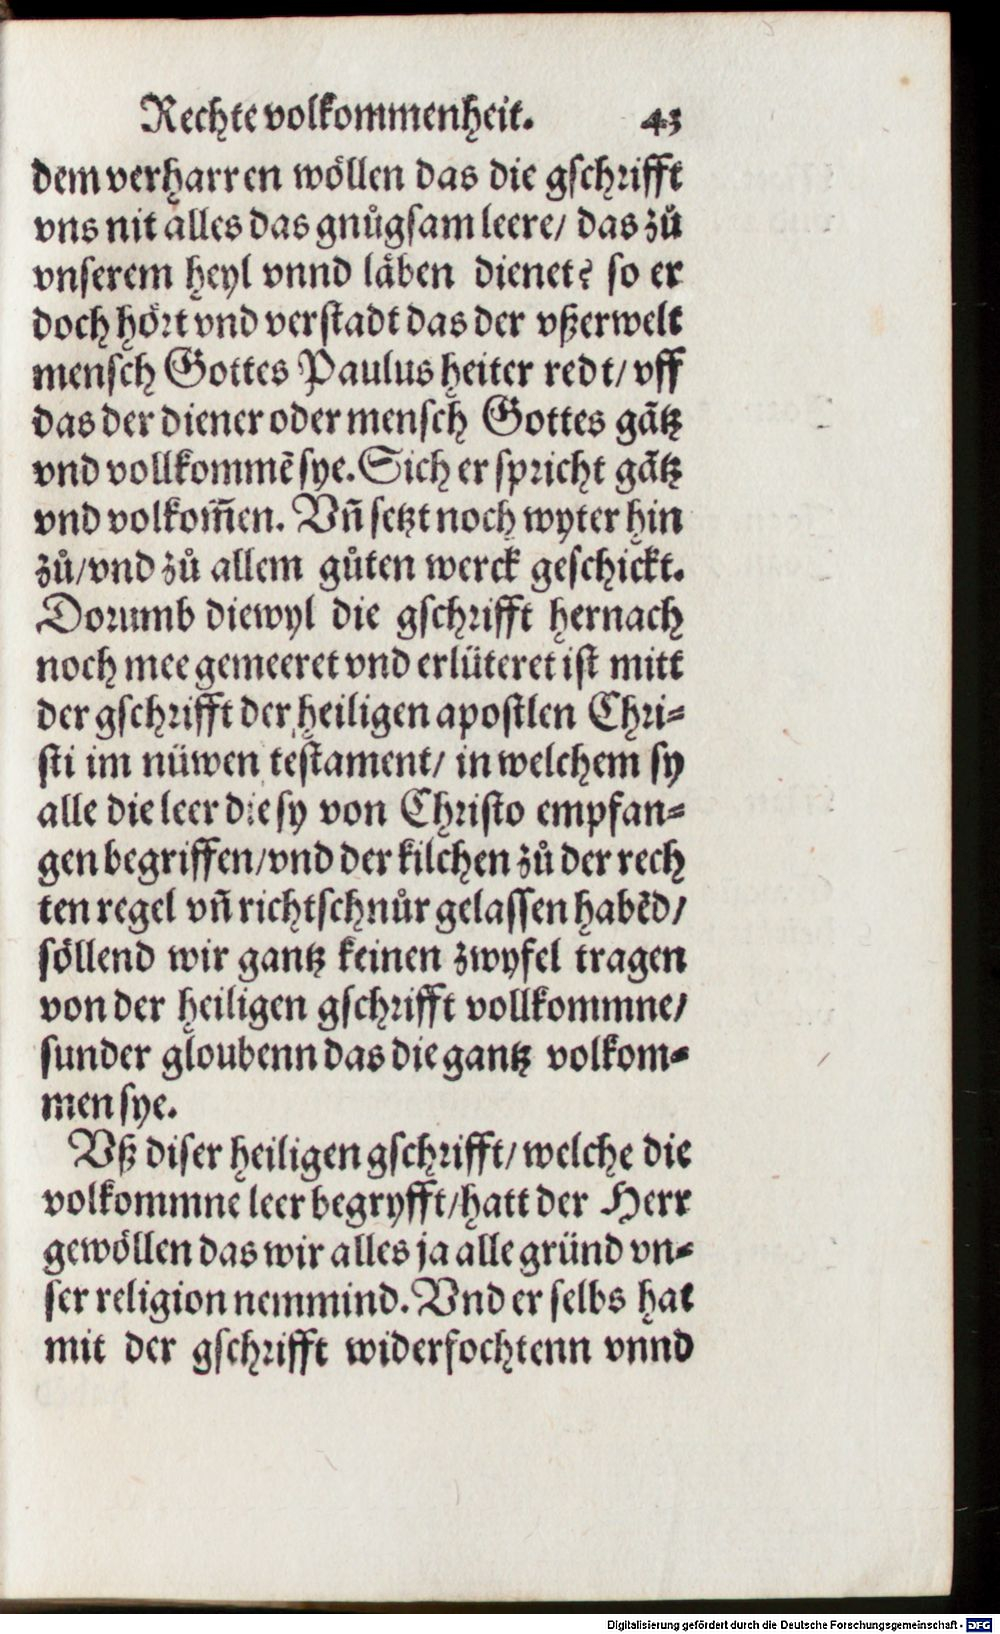 Rechte volkommenheit. 43
dem verharren wöllen das die gschrifft
vns nit alles das gnůgsam leere/ das zů
vnserem heyl vnnd läben dienet? so er
doch hört vnd verstadt das der vßerwelt
mensch Gottes Paulus heiter redt/ vff
das der diener oder mensch Gottes gãtz
vnd vollkommẽ sye. Sich er spricht gãtz
vnd volkom̃en. Vñ setzt noch wyter hin
zů/vnd zů allem gůten werck geschickt.
Dorumb diewyl die gschrifft hernach
noch mee gemeeret vnd erlüteret ist mitt
der gschrifft der heiligen apostlen Chri⸗
sti im nüwen testament/ in welchem sy
alle die leer die sy von Christo empfan⸗
gen begriffen/vnd der kilchen zů der rech
ten regel vñ richtschnůr gelassen habẽd/
söllend wir gantz keinen zwyfel tragen
von der heiligen gschrifft vollkommne/
sunder gloubenn das die gantz volkom⸗
men sye.
Vß diser heiligen gschrifft/ welche die
volkommne leer begryfft/hatt der Herr
gewöllen das wir alles ja alle gründ vn⸗
ser religion nemmind. Vnd er selbs hat
mit der gschrifft widerfochtenn vnnd
Digitalisierung gefördert durch die Deutsche Forschungsgemeinschaft - DFG